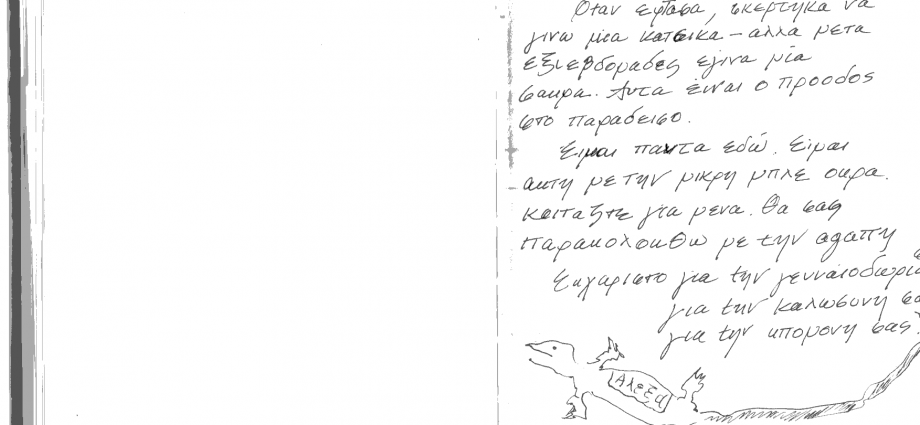 Οταν εφτασα, σκερτηκα να
γινω μια κατσικα – αλλα μετα
εξι εβδομαδες εγινα μια
σαυρα. Αυτα ειναι ο προοδος
στο παραδεισο.
Ειμαι παντα εδώ. Ειμαι
αυτη με την μικρη μπλε ουρα.
Κοιταξτε για μενα. Θα σας
παρακολουθω με την αγαπη
Ευχαριστο για την γενναιοδωρια
για την καλωσυνη
για την υπομονη σας.
Αλεξα